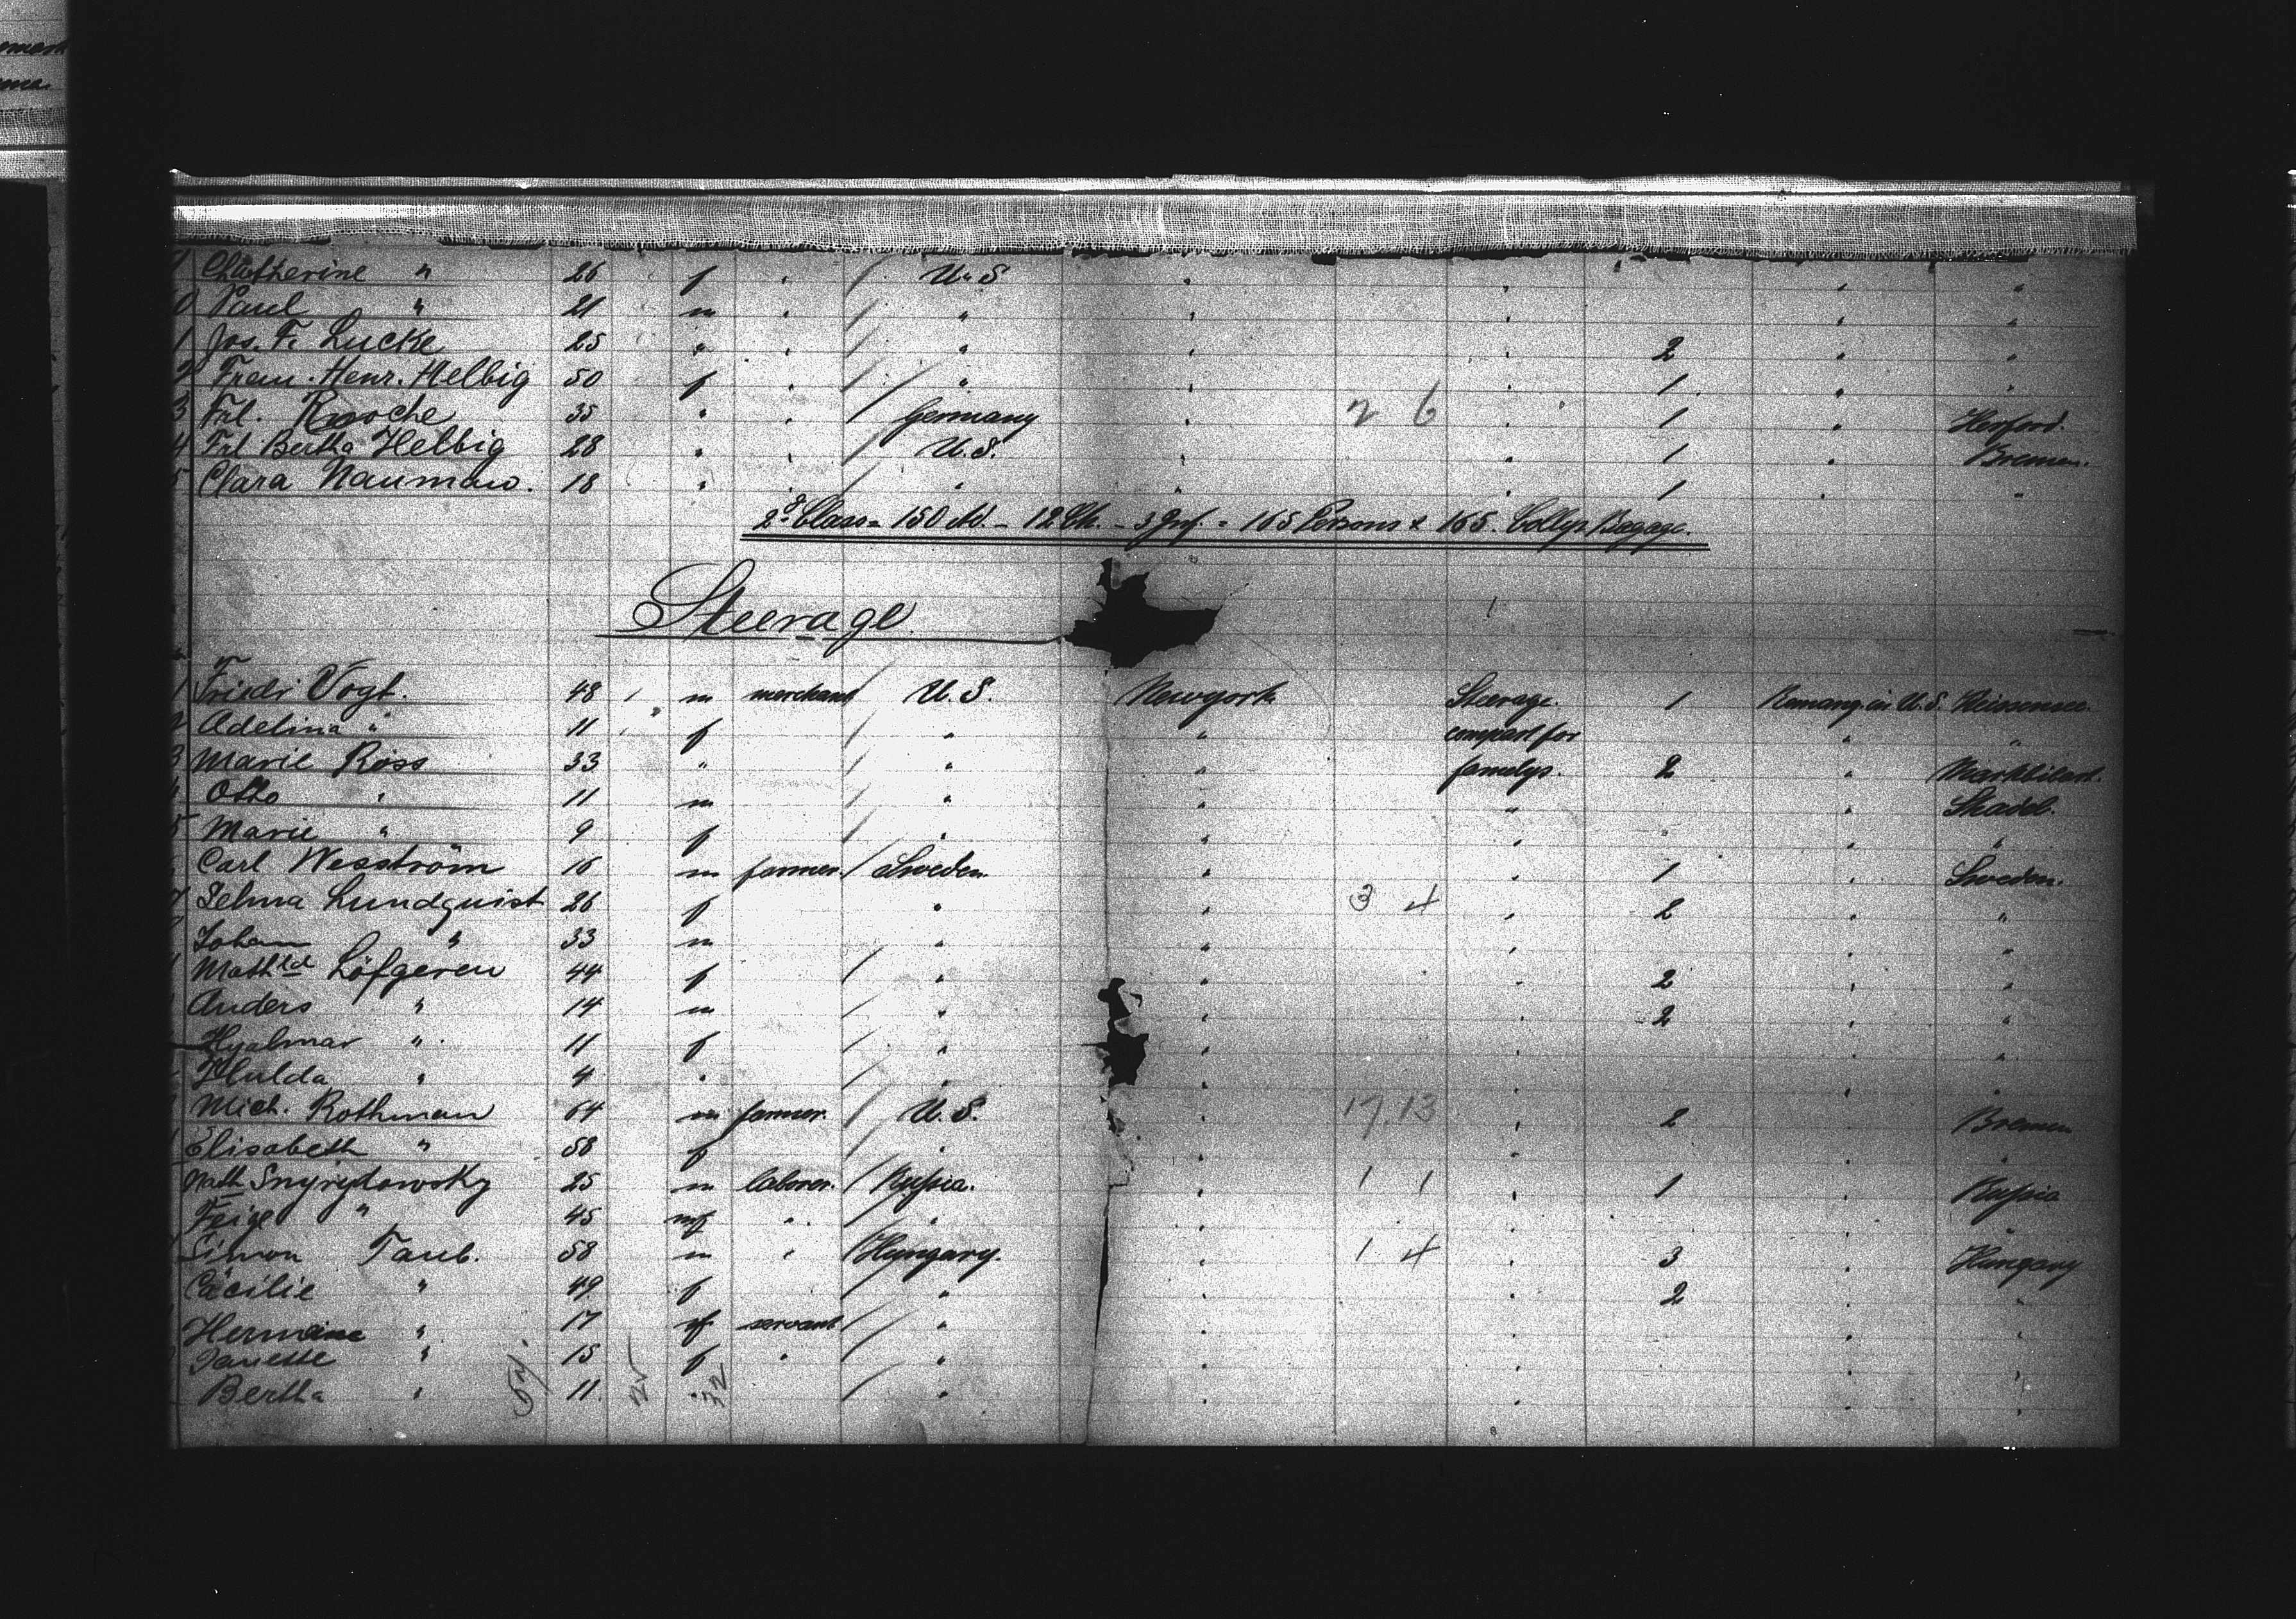 Chatherine " 26 f " / U. S " " " "
0 Paul " 21 m " / " " " " "
1 Jos. F. Lucke 25 " " / " " " 2 " "
2 Frau Henr. Helbig 50 f " / " " " 1 " "
3 Frl. 35 " " / Germany " 2 6 " 1 " Herford.
4 Frl Bertha Helbig 28 " " / U. S. " " 1 " Bremen.
5 Clara Naumann. 18 " " / " " " 1 " "
2d Class = 150 Ad. - 12 Ch. - 3 Inf. = 165 Persons & 165. Collys Bagage.
Steerage
1 Friedr Vogt. 48 m merchant / U. S. Newyork Steerage. 1 Remang. in U. S.
2 Adelina " 11 f / " " compart for " "
3 Marie Ross 33 " / " " familys. 2 "
4 Otto " 11 m / " " " "
5 Marie " 9 f / " " " " "
Carl Wesström 16 m farmer / Sweden " " 1 " Sweden.
7 Selma Lundquist 26 f " " 3 4 " 2 " "
Johann " 33 m " " " " "
Mathld Löfgeren 44 f / " " " 2 " "
Anders " 14 m / " " " 2 " "
Hyalmar " 11 f / " " " " "
Hulda " 4 " / " " " " "
Mich. Rothman 64 m farmer. / U. S. " 17 13 " 2 " Bremen
Elisabeth " 58 f / " " " " "
Nath 25 m laborer. / Russia. " 1 1 " 1 " Russia
Feige " 45 f " / " " " " "
Simon Taub. 58 m " / Hungary. " 1 4 " 3 " Hungary
Cäcilie " 49 f / " " " 2 " "
Hermine " 17 f servant / " " " " "
Janette " 15 f " / " " " " "
Bertha " 11. " / " " " " "